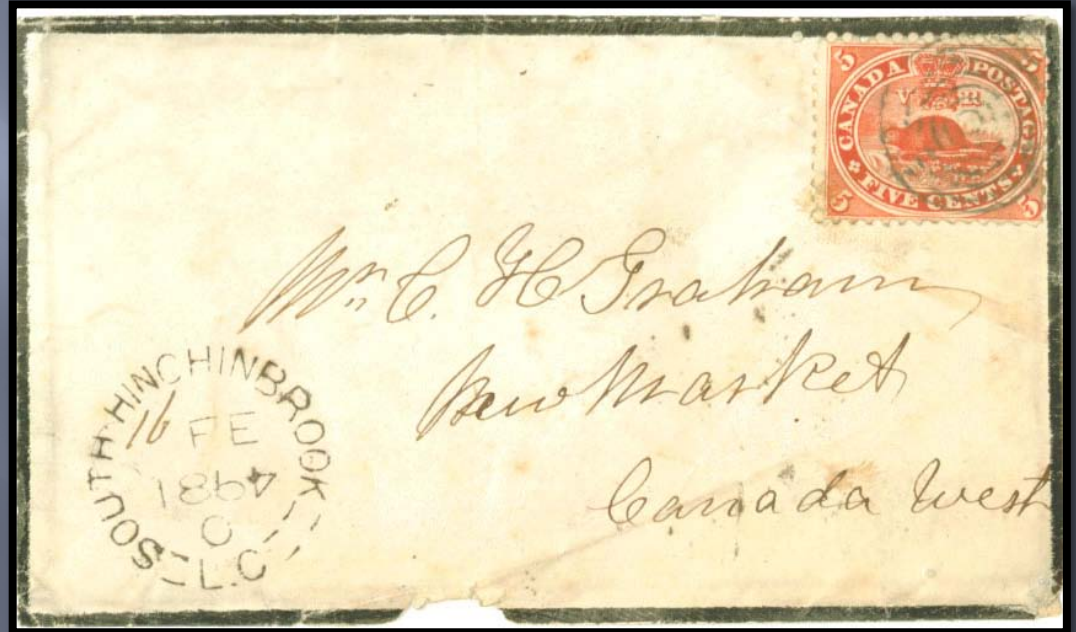 5 5
CANADA POSTAGE
V R
FIVE CENTS
5 5
Mr. C. H Graham
New Market
Canada West
SOUTH HINCHINBROOK
16 FE
1864
L.C